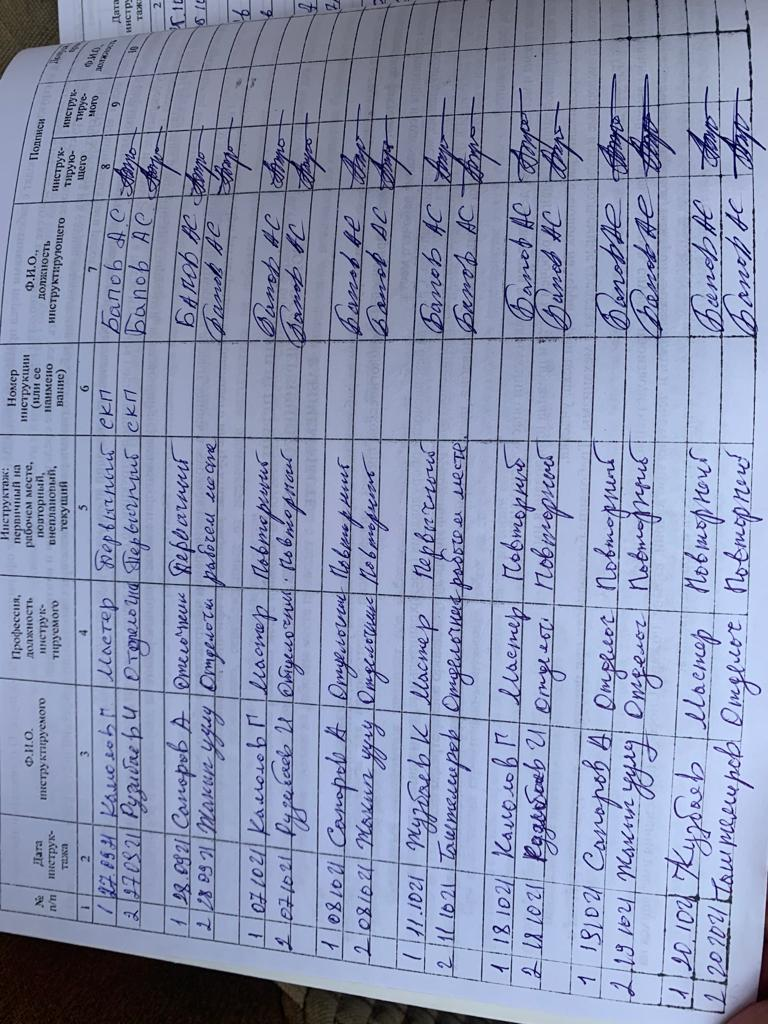 № п/п | Дата инструк-тажа | Ф.И.О. инструктируемого | Профессия, должность инструк-тируемого | Инструктаж: первичный на рабочем месте, повторный, внеплановый, текущий | Номер инструкции (или ее наимено вание) | Ф.И.О., должность инструктирующего | Подписи | инструк-тирую-щего | инструк-тируе-мого
1 2 3 4 5 6 7 8 9 10
1 270921 Камолов Г Мастер Первычный СКП Бапов АС
2 270921 Рузибаев И Отделочн Первычный СКП Бапов АС
1 280921 Сапоров А Отделочник Первачний Бапов АС
2 280921 Жакип уулу Отделочн рабочем месте Бапов АС
1 071021 Камолов Г Мастер Повторний Бапов АС
2 071021 Рузибаев И Отделочни. Повторний Бапов АС
1 081021 Сапоров А Отделочник Повторний Бапов АС
2 081021 Жакип уулу Отделочник Повторний Бапов АС
1 11.1021 Журбаев К Мастер Первычный Бапов АС
2 111021 Таштемиров Отделочник рабочем месте Бапов АС
1 181021 Камолов Г Мастер Повторний Бапов АС
2 181021 Рузибаев И Отделоч Повторний Бапов АС
1 191021 Сапоров А Отделоч Повторний Бапов АС
2 191021 Жакип уулу Отделоч Повторный Бапов АС
1 201021 Журбаев Мастер Повторной Бапов АС
2 201021 Таштемиров Отделоч Повторний Бапов АС